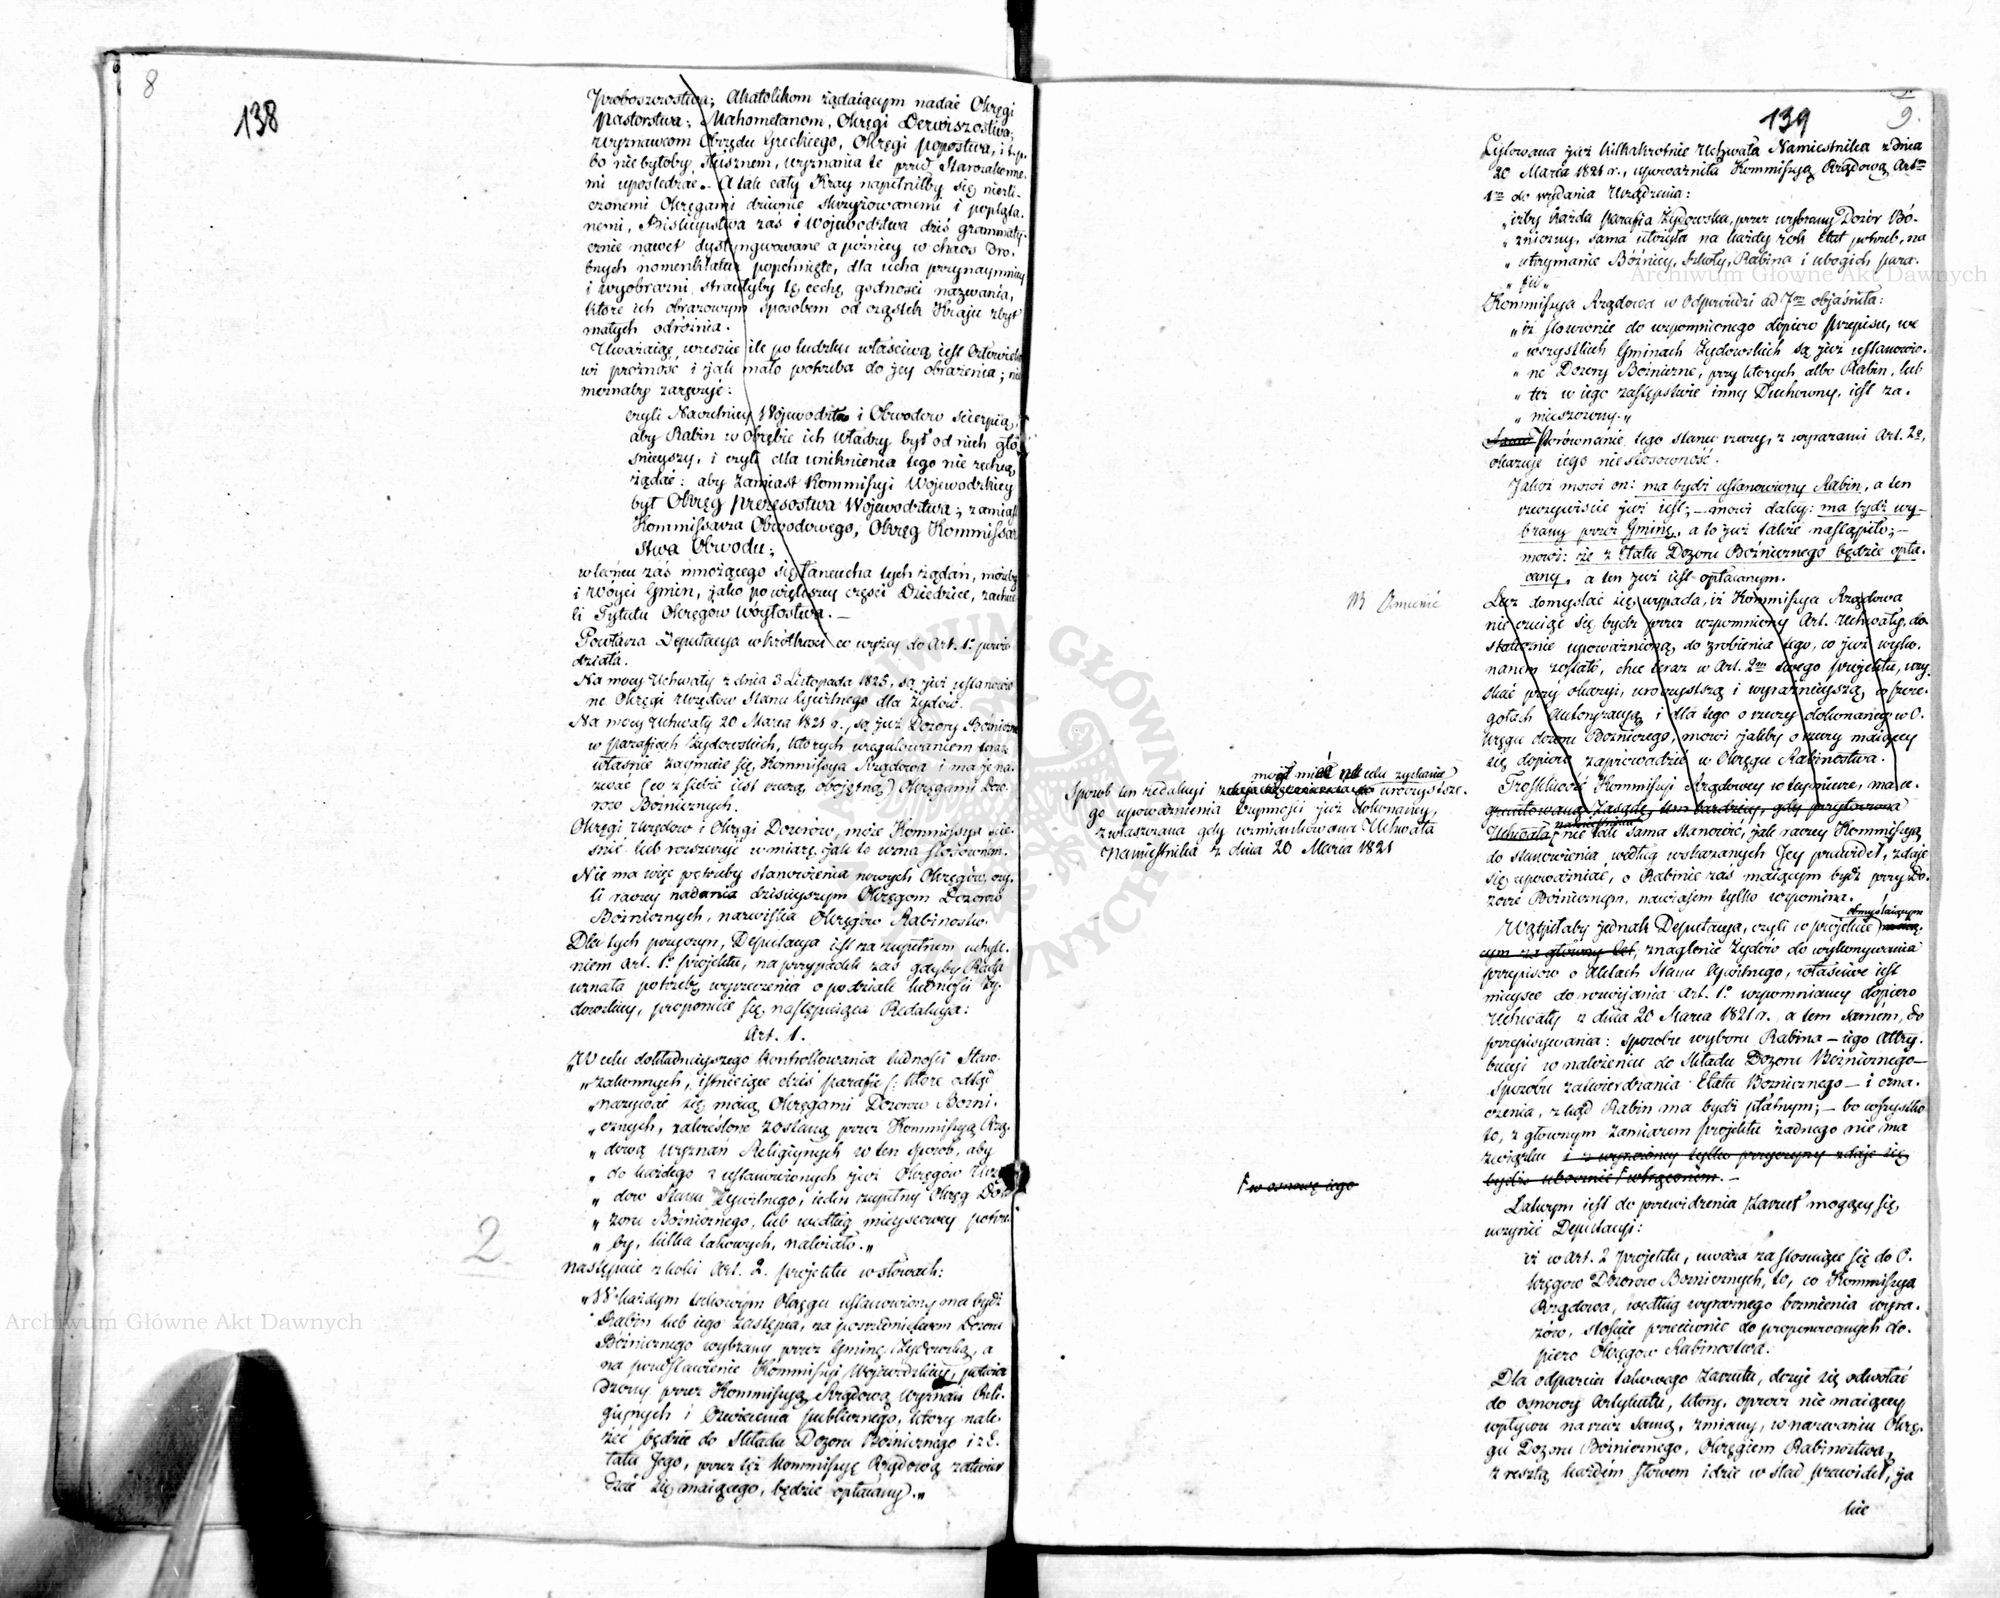 8
138
Proboszczostwa; Akatolikom żądaiącym nadać Okręgi
Pastorstwa; Mahometanom, Okręgi Derwiszostwa;
wyznawcom Obrzędu Greckiego, Okręgi popostwa, i t.p.
bo nie byłoby słusznem, wyznania te przed Starozakonne-
mi upośledzać. A tak cały Kray napełniłby się niezli-
czonemi Okręgami dziwnie skrzyżowanemi i popląta-
nemi, Biskupstwa zaś i Województwa dziś grammaty-
cznie nawet dystyngwowane a późniey w chaos dro-
bnych nomenklatur popchnięte, dla ucha przynaymniey
i wyobraźni straciłyby tę cechę godności nazwania,
które ich obrazowym sposobem od cząstek Kraju zbyt
małych odróżnia.
Uważaiąc wreszcie ile po ludzku właściwą iest Człowieko
wi próżność i jak mało potrzeba do jey obrażenia; nie
możnaby zaręczyć:
czyli Naczelnicy Województw i Obwodow scierpią,
aby Rabin w Obrębie ich Władzy był od nich gło-
śnieyszy, i czyli dla uniknienia tego nie zechcą
żądać: aby zamiast Kommissyi Wojewodzkiey
był Okręg prezesostwa Województwa; zamiast
Kommissarza Obwodowego, Okręg Kommissar
stwa Obwodu;
w końcu zaś mnożącego się łańcucha tych żądań, możeby
i Wóyci Gmin, jako po większey części Dziedzice, zachcie-
li Tytułu Okręgów Wóytostwa. —
Powtarza Deputacya w krótkości co wyżey do Art. 1º powie-
działa.
Na mocy Uchwały z dnia 3 Listopada 1825, są już ustanowio
ne Okręgi Urzędow Stanu Cywilnego dla Żydów.
Na mocy Uchwały 20 Marca 1821 r., są już Dozory Bóżnicze
w parafiach Żydowskich, których uregulowaniem teraz
właśnie zaymuie się, Kommissya Rządowa i ma je na-
zwać (co w sobie iest rzeczą obojętną) Okręgami Dozo-
row Bożniczych.
Okręgi Urzędow i Okręgi Dozorów, może Kommissya ście-
śnić lub rozszerzyć w miarę, jak to uzna stosownem.
Nie ma więc potrzeby stanowienia nowych Okręgów, czy-
li raczey nadania dzisieyszym Okręgom Dozorow
Bożniczych, nazwiska Okręgów Rabinostw.
Dla tych przyczyn, Deputacya iest za zupełnem uchyle-
niem Art. 1º projektu, na przypadek zaś gdyby Rada
uznała potrzebę wyrzeczenia o podziale ludności Ży-
dowskiey, proponuie się, następuiąca Redakcya:
Art. 1.
„W celu dokładnieyszego kontrollowania ludności Staro-
„zakonnych, istnieiące dziś parafie (: które odtąd
„nazywać się maią Okręgami Dozorow Bożni-
„cznych, zakreślone zostaną przez Kommissyą Rzą-
„dową Wyznań Religiynych w ten sposób, aby
„do każdego z ustanowionych już Okręgów Urzę-
„dow Stanu Cywilnego, ieden zupełny Okręg Do-
„zoru Bożnicznego, lub według mieyscowey potrze-
„by, kilka takowych, należało.„
2
Następnie z kolei Art. 2. projektu w słowach:
„W każdym takowym Okręgu ustanowiony ma bydź
Rabin lub iego zastępca, za pośrednictwem Dozoru
Bóżnicznego wybrany przez Gminę Żydowską, a
na przedstawienie Kommissyi Wojewodzkiey, potwier
dzony przez Kommissyą Rządową Wyznań Reli-
giynych i Oświecenia publicznego, który nale-
żeć będzie do Składu Dozoru Bożnicznego i z E-
tatu Jego, przez też Kommissyę Rządową zatwier
dzać się maiącego, będzie opłacany.„
139
9.
Cytowana już kilkakrotnie Uchwała Namiestnika z dnia
20 Marca 1821 r., upoważniła Kommissyą Rządową Artm
1m do wydania Urządzenia:
„iżby każda parafia Żydowska, przez wybrany Dozór Bó-
„żniczny, sama ułożyła na każdy rok Etat potrzeb, na
„utrzymanie Bożnicy, Szkoły, Rabina i ubogich para-
„fii„
Kommissya Rządowa w Odpowiedzi ad 7m objaśniła:
„iż stosownie do wspomnionego dopiero przepisu, we
„wszystkich Gminach Żydowskich są już ustanowio-
„ne Dozory Bożniczne, przy których albo Rabin, lub
„też w iego zastępstwie inny Duchowny, iest za-
„mieszczony.„
Porównanie tego stanu rzeczy, z wyrazami Art. 2º,
okazuje iego niestosowność.
Jakoż mowi on: ma bydź ustanowiony Rabin, a ten
rzeczywiście już iest; — mowi daley: ma bydź wy-
brany przez Gminę, a to już także nastąpiło; —
mowi: że z Etatu Dozoru Bożnicznego będzie opła-
cany, a ten już iest opłacanym.
NB Zmienić
Lecz domyslać się wypada, iż Kommissya Rządowa
nie czuiąc się bydź przez wzpomniony Art. Uchwały, do-
statecznie upoważnioną, do zrobienia tego, co już wyko-
nanem zostało, chce teraz w Art. 2m swego projektu, uzy-
skać przy okazyi, uroczystszą i wyraźnieyszą w szcze-
gołach Autoryzacyą i dla tego o rzeczy dokonaney w O-
kręgu dozoru Bożniczego, mowi jakby o rzeczy maiącey
się dopiero zaprowadzić w Okręgu Rabinostwa.
Sposob ten redakcyi mógł mieć na celu zyskanie uroczystsze-
go upoważnienia czynności już dokonaney,
zwłaszcza gdy wzmiankowana Uchwała
Namiestnika z dnia 20 Marca 1821
Troskliwość Kommissyi Rządowey w teymierze, ma u-
gruntowaną zasadę, tem bardziey, gdy przytoczona
Uchwała, nie tak sama stanowić, jak raczey Kommissyą
do stanowienia według wskazanych Jey prawideł, zdaje
się upoważniać, o Rabinie zaś maiącym bydź przy Do-
zorze Bożnicznym, nawiasem tylko wspomina.
Wątpiłaby jednak Deputacya, czyli w projekcie obmyślaiącym
znaglenie Żydów do wykonywania
przepisów o Aktach Stanu Cywilnego, właściwe iest
mieysce do rozwijania Art. 1º wspomnianey dopiero
Uchwały z dnia 20 Marca 1821 r., a tem samem, do
przepisywania: sposobu wyboru Rabina — iego Attry-
bucyi w należeniu do Składu Dozoru Bożnicznego —
sposobu zatwierdzania Etatu Bożnicznego — i ozna-
czenia, z kąd Rabin ma bydź płatnym; — bo wszystko
to, z głownym zamiarem projektu żadnego nie ma
związku i z wyrażoney tylko przyczyny zdaje się
bydź ubocznie F wtrąconem. —
F w osnowę iego
Łatwym iest do przewidzenia zarzut mogący się,
uczynić Deputacyi:
iż w Art. 2 projektu, uważa za stosuiące się do O-
kręgow Dozorow Bożnicznych, to, co Kommissya
Rządowa, według wyraźnego brzmienia wyra-
zów, stosuie przeciwnie do proponowanych do-
piero Okręgow Rabinostwa.
Dla odparcia takowego zarzutu, dosyć się odwołać
do osnowy Artykułu, który, oprocz nie maiącey
wpływu na rzecz samą, zmiany, w nazwaniu Okrę-
gu Dozoru Bożnicznego, Okręgiem Rabinostwa,
z resztą każdém słowem idzie w ślad prawideł, ja
kie
Archiwum Główne Akt Dawnych
Archiwum Główne Akt Dawnych
ARCHIWUM GŁÓWNE AKT DAWNYCH